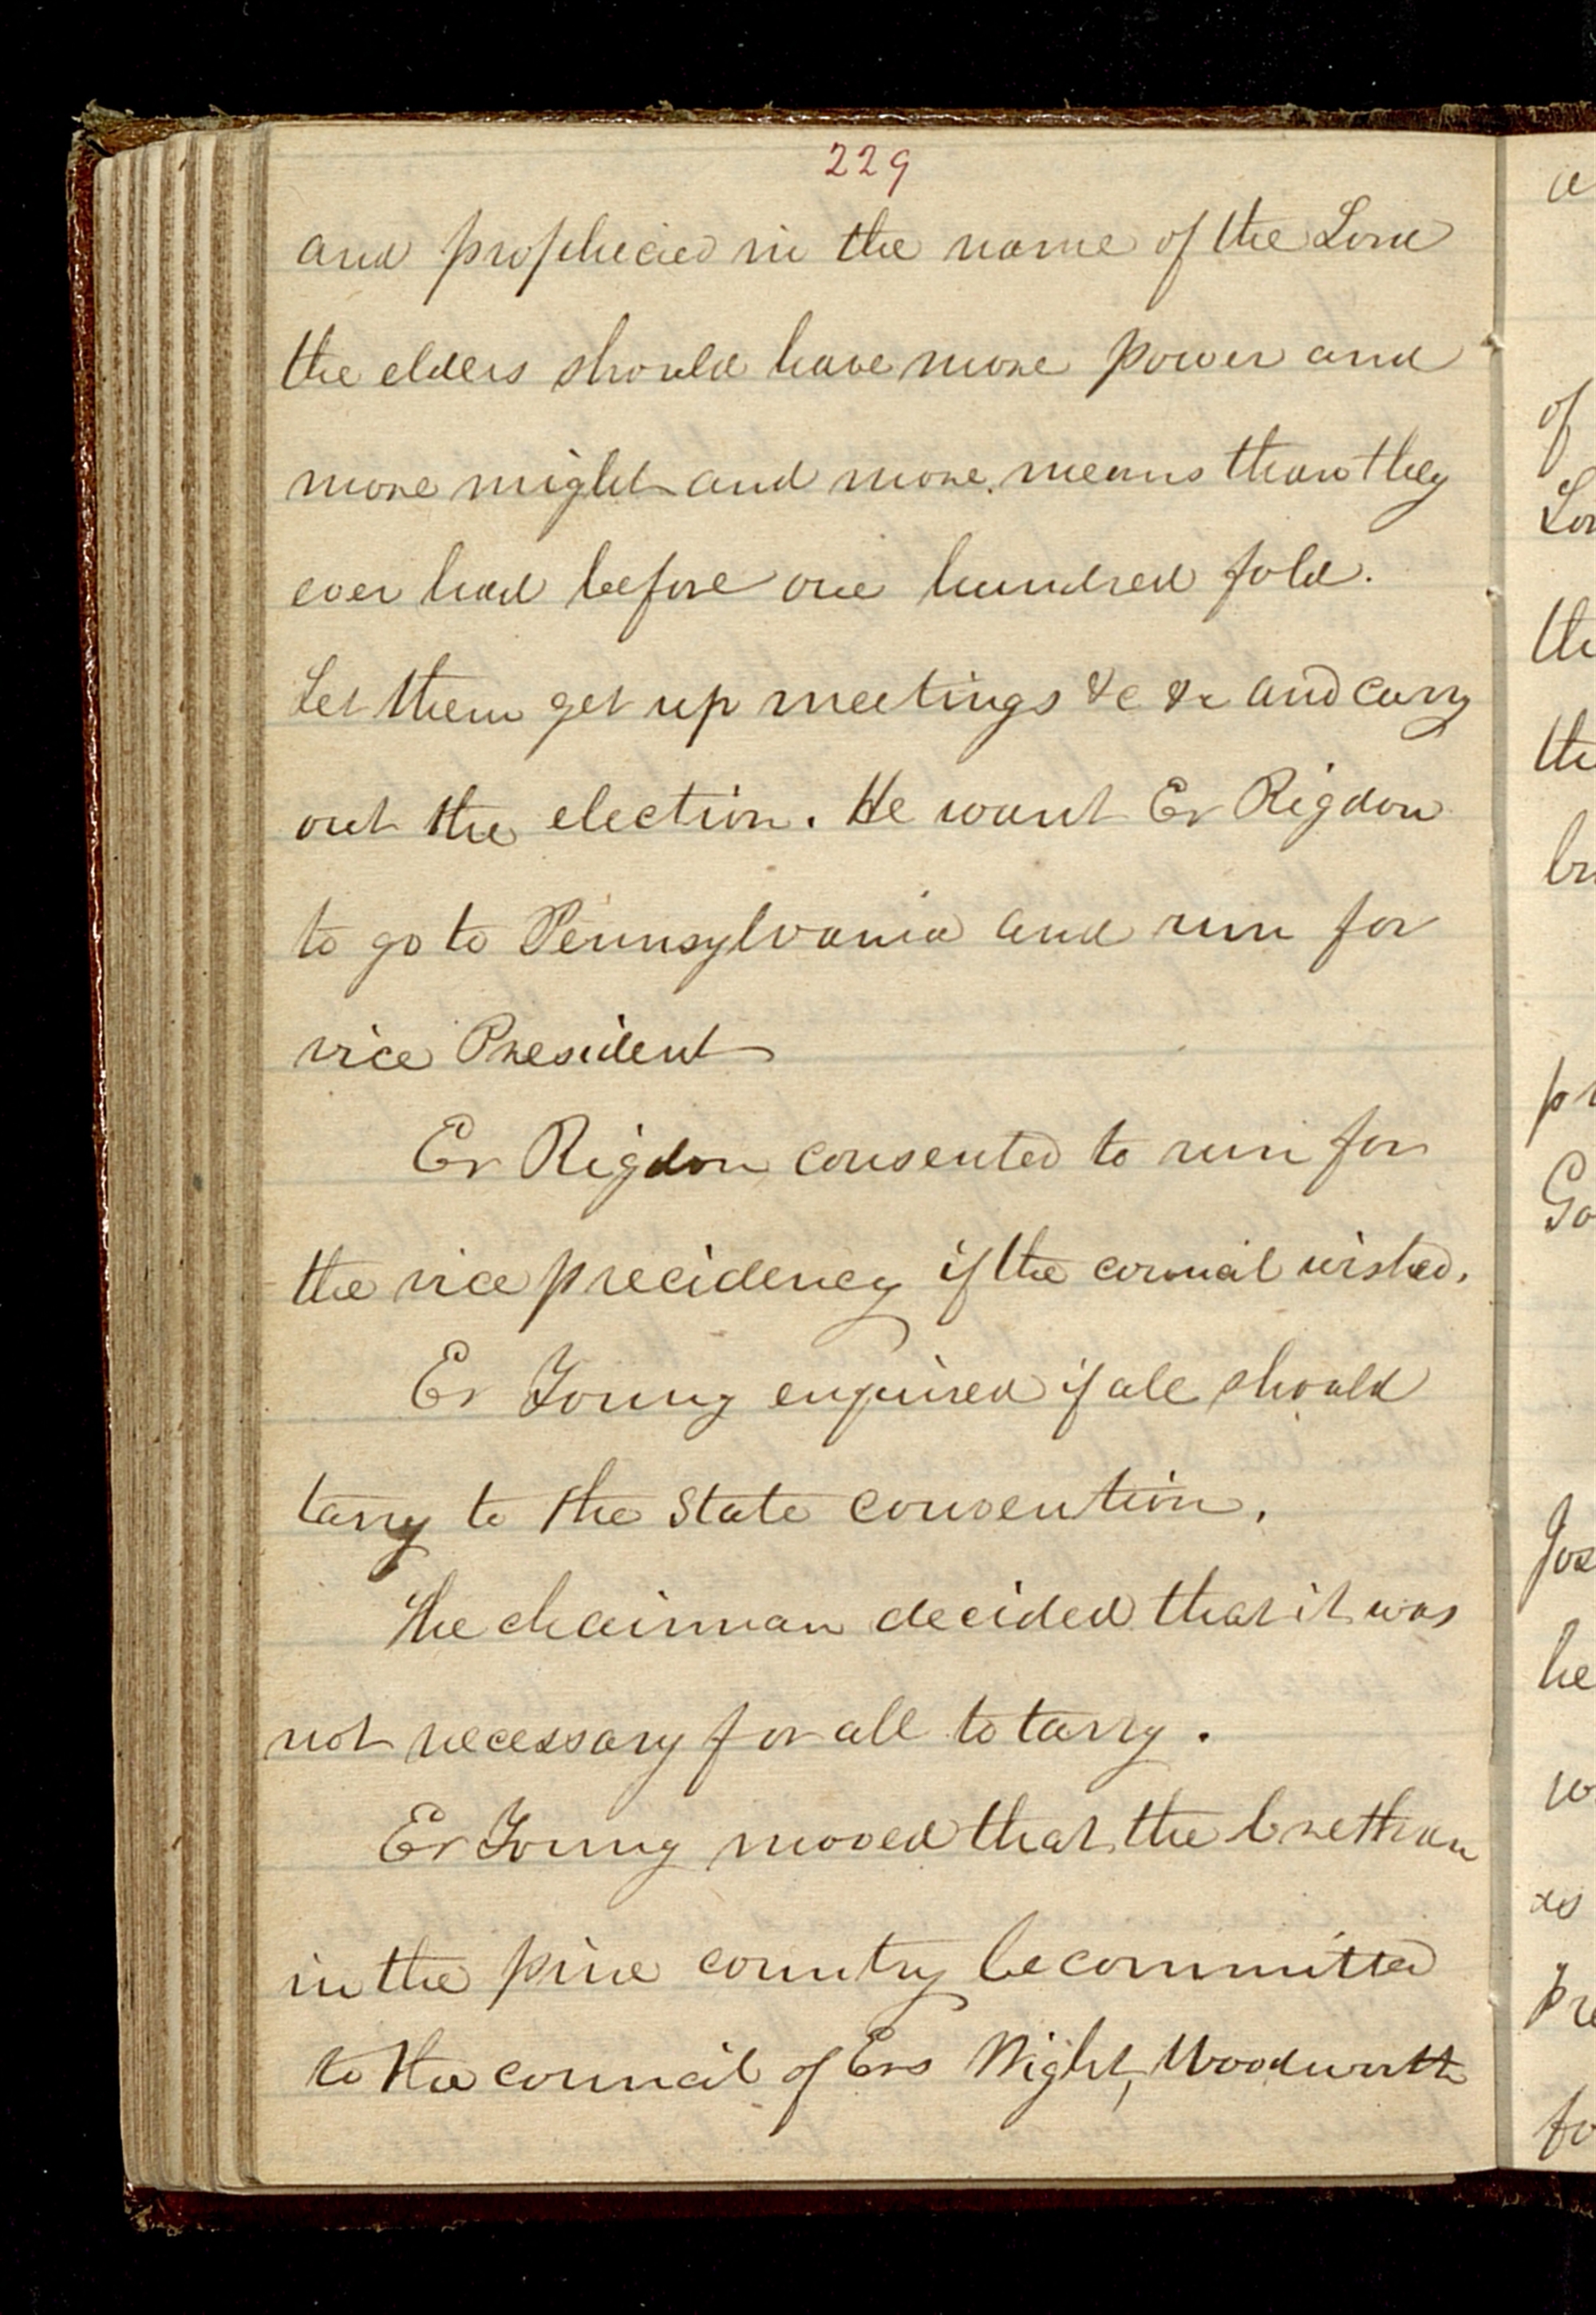 229
and prophecied in the name of the Lord
the elders should have more power and
more might and more means than they
ever had before one hundred fold.
Let them get up meetings &c &c and carry
out the election. He want Er Rigdon
to go to Pennsylvania and run for
vice President
Er Rigdon consented to run for
the vice precidency if the council wished.
Er Young enquired if all should
tarry to the State convention.
The chairman decided that it was
not necessary for all to tarry.
Er Young moved that the brethren
in the pine country be committed
to the council of Ers Wight, Woodworth